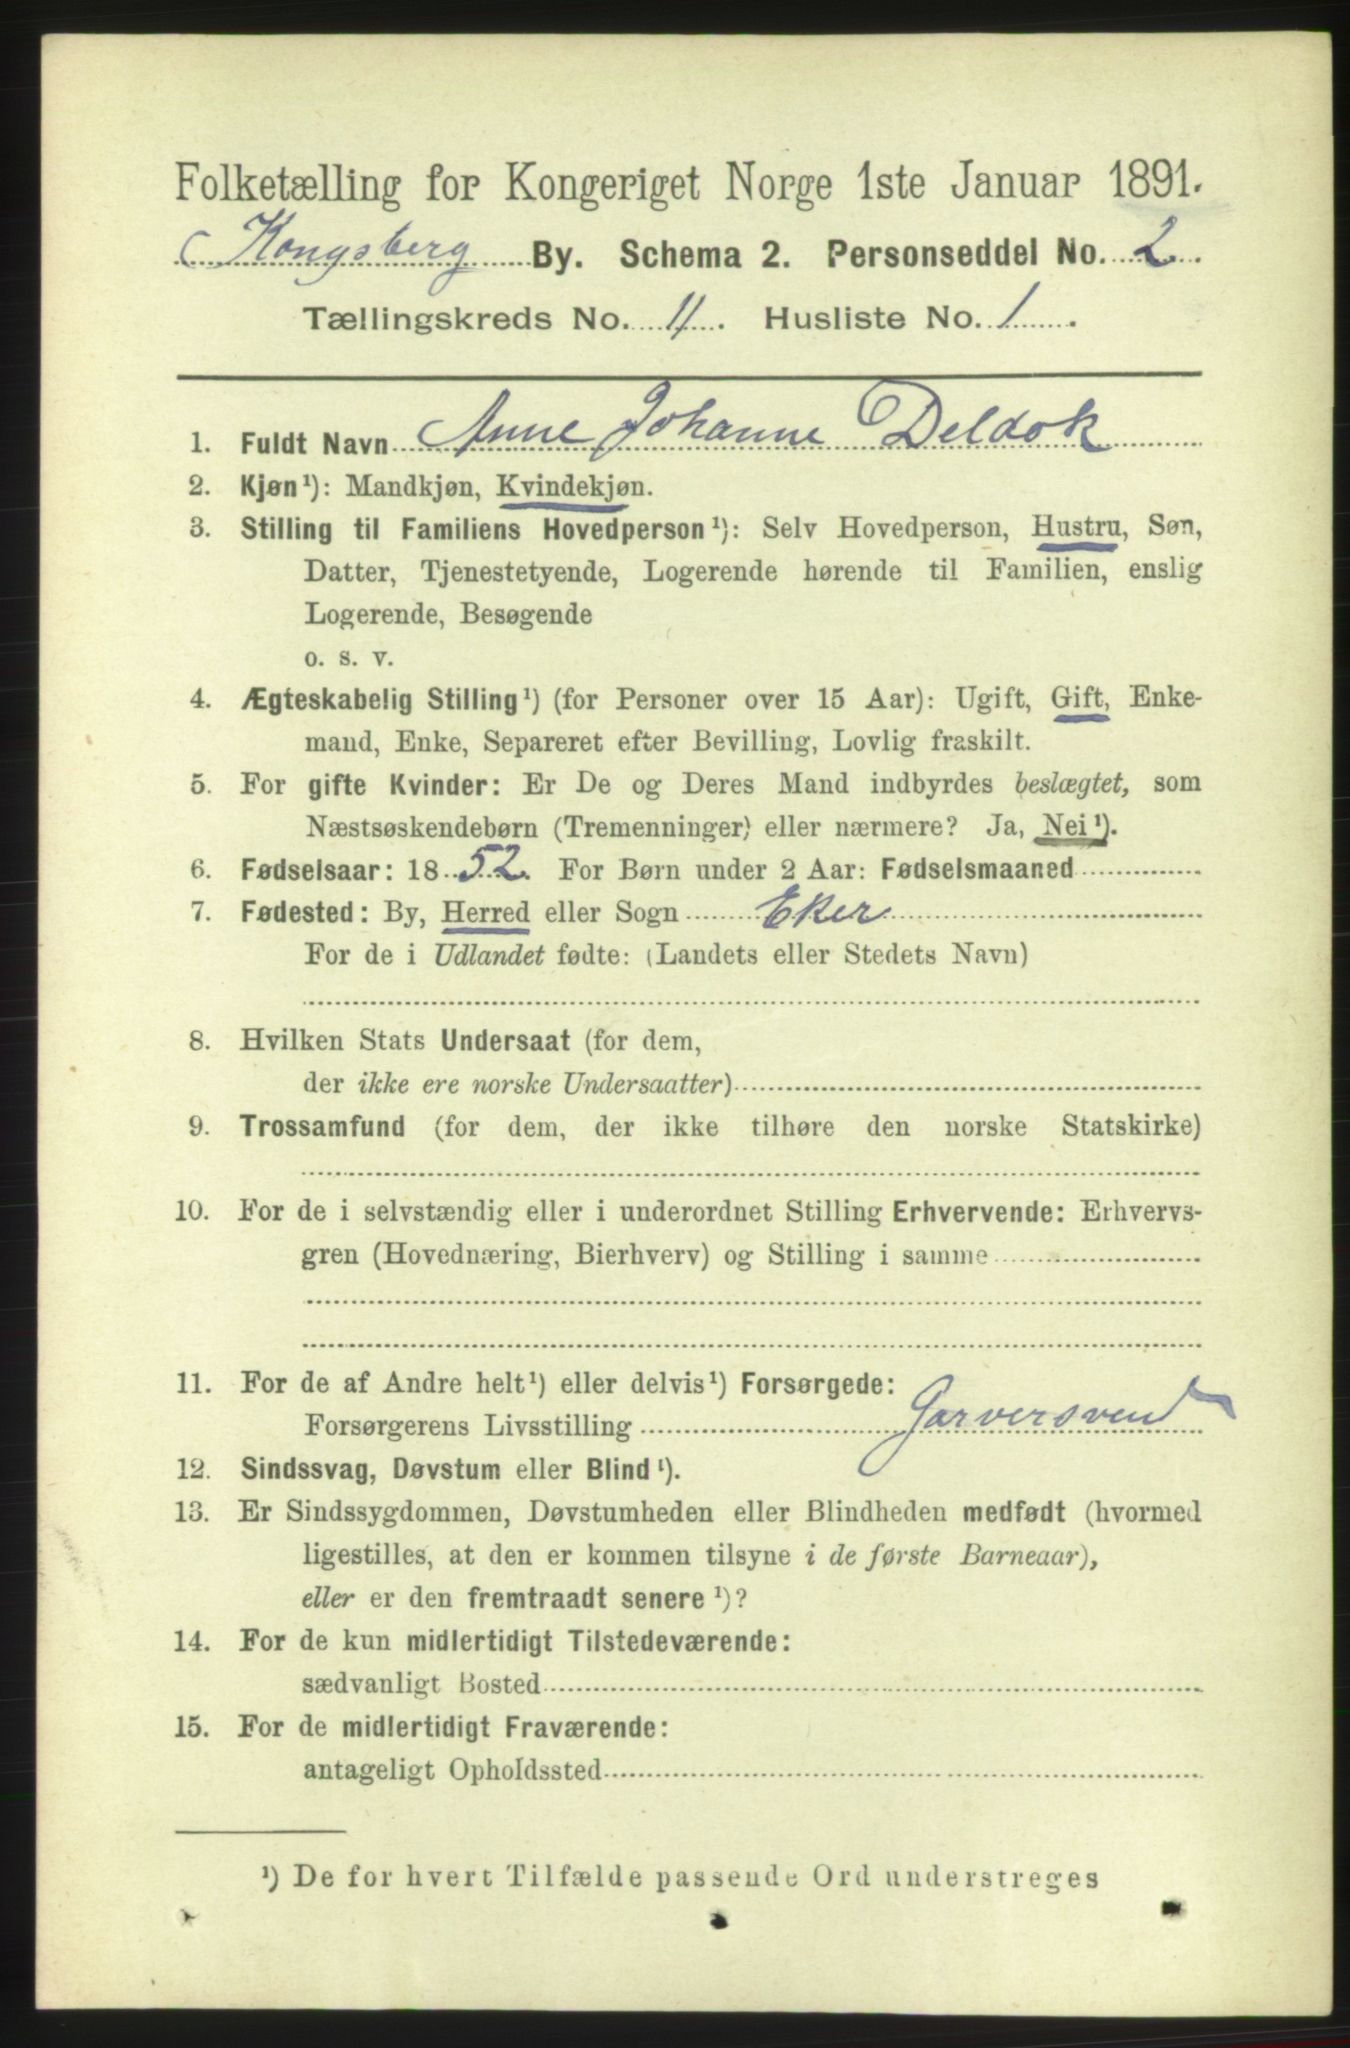 Folketælling for Kongeriget Norge 1ste Januar 1891.
Kongsberg By. Schema 2. Personseddel No. 2.
Tællingskreds No. 11. Husliste No. 1.
1. Fuldt Navn Anne Johanne Deldok
2. Kjøn¹): Mandkjøn, Kvindekjøn.
3. Stilling til Familiens Hovedperson¹): Selv Hovedperson, Hustru, Søn,
Datter, Tjenestetyende, Logerende hørende til Familien, enslig
Logerende, Besøgende
o. s. v.
4. Ægteskabelig Stilling¹) (for Personer over 15 Aar): Ugift, Gift, Enke-
mand, Enke, Separeret efter Bevilling, Lovlig fraskilt.
5. For gifte Kvinder: Er De og Deres Mand indbyrdes beslægtet, som
Næstsøskendebørn (Tremenninger) eller nærmere? Ja, Nei¹).
6. Fødselsaar: 1852. For Børn under 2 Aar: Fødselsmaaned
7. Fødested: By, Herred eller Sogn Eker
For de i Udlandet fødte: (Landets eller Stedets Navn)
8. Hvilken Stats Undersaat (for dem,
der ikke ere norske Undersaatter)
9. Trossamfund (for dem, der ikke tilhøre den norske Statskirke)
10. For de i selvstændig eller i underordnet Stilling Erhvervende: Erhvervs-
gren (Hovednæring, Bierhverv) og Stilling i samme
11. For de af Andre helt¹) eller delvis¹) Forsørgede:
Forsørgerens Livsstilling Garversvend
12. Sindssvag, Døvstum eller Blind¹).
13. Er Sindssygdommen, Døvstumheden eller Blindheden medfødt (hvormed
ligestilles, at den er kommen tilsyne i de første Barneaar),
eller er den fremtraadt senere¹)?
14. For de kun midlertidigt Tilstedeværende:
sædvanligt Bosted
15. For de midlertidigt Fraværende:
antageligt Opholdssted
¹) De for hvert Tilfælde passende Ord understreges